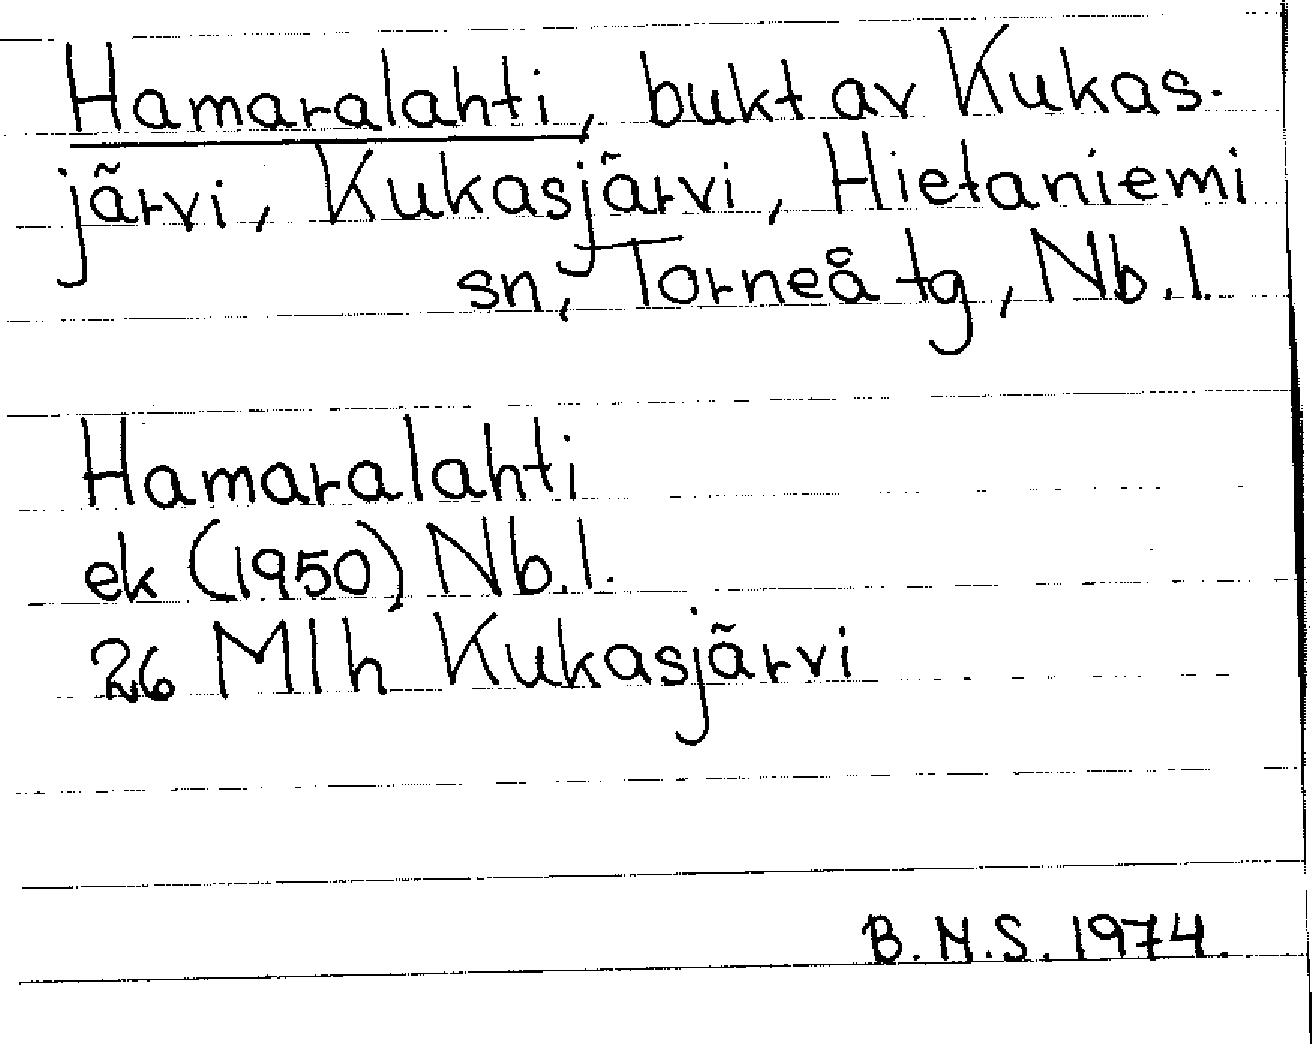 Hamaralahti, bukt av Kukas-
järvi, Kukasjärvi, Hietaniemi
sn, Torneå tg, Nb.l.
Hamaralahti
ek (1950) Nb.l.
26 Mlh Kukasjärvi
B.N.S. 1974.